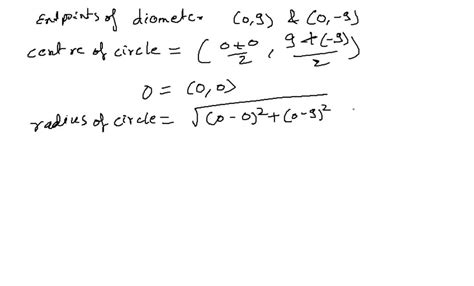 Endpoints of diameter (0,9) & (0,-9)
centre of circle = ( 0+0/2 , 9+(-9)/2 )
O = (0,0)
radius of circle = √(0-0)²+(0-9)²